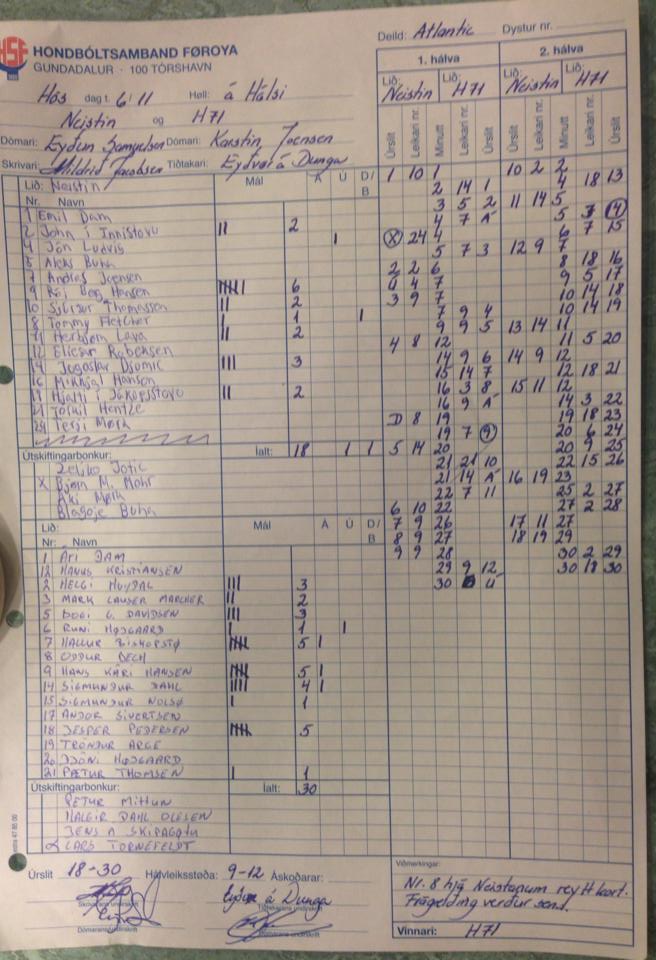 HSF
HONDBÓLTSAMBAND FØROYA
GUNDADALUR · 100 TÓRSHAVN
Deild: Atlantic Dystur nr.
Hós dag t. 6/11 Høll: á Hálsi
Neistin og H71
Dómari: Eyðun Samuelsen Dómari: Karstin Joensen
Skrivari: Mildrid Jacobsen Tíðtakari: Eyðvør á Dunga
1. hálva 2. hálva
Lið: Neistin Lið: H71 Lið: Neistin Lið: H71
Úrslit Leikari nr. Minutt Leikari nr. Úrslit Úrslit Leikari nr. Minutt Leikari nr. Úrslit
Lið: Neistin Mál Á Ú D/B
Nr. Navn
1 Emil Dam
2 John í Innistovu 2
4 Jón Ludvig 1
5 Aleks Buha
7 Andras Joensen
9 Rói Berg Hansen 6
10 Sjúrður Thomassen 2
8 Tommy Fletcher 1 1
11 Herbjørn Lava 2
12 Eliesar Rubeksen
14 Jogoslav Djomic 3
16 Mikkjal Hansen
19 Hjalti í Jákupsstovu 2
21 Jórmil Hentze
24 Terji Mørk
Útskiftingarbonkur: Íalt: 18 1 1
Zeljko Jotic
X Bjørn M. Mohr
Aki Mørk
Blagoje Buha
Lið: Mál Á Ú D/B
Nr: Navn
1 ÁRI DAM
12 HANUS KRISTIANSEN
2 HELGI HOYDAL 3
3 MARK LAUSER MARCHER 2
5 BOGI G. DAVIDSEN 3
6 RUNI HØJGAARD 1 1
7 HALLUR BISKOPSTØ 5 1
8 ODDUR BECH
9 HANS KÁRI HANSEN 5 1
14 SIGMUNDUR DAHL 4 1
15 SIGMUNDUR NOLSØ 1
17 ANDOR SIVERTSEN
18 JESPER PEDERSEN 5
19 TRÓNDUR ARGE
20 JÓNI HØJGAARD
21 PÆTUR THOMSEN 1
Útskiftingarbonkur: Íalt: 30
PETUR MITTUN
HALGIR DAHL OLESEN
JENS A SKIPAGØTU
LARS TORNEFELDT
1 10 1
2 14 1
3 5 2
4 7 Á
X 24 4
5 7 3
2 2 6
Ú 4 7
3 9 7
7 9 4
9 9 5
4 8 12
14 9 6
15 14 7
16 3 8
16 9 Á
D 8 19
19 7 9
5 14 20
21 21 10
21 14 Á
22 7 11
6 10 22
7 9 26
8 9 27
9 9 28
29 9 12
30 6 Ú
10 2 2
4 18 13
11 14 5
5 7 14
6 7 15
12 9 7
8 18 16
9 5 17
10 14 18
10 14 19
13 14 11
11 5 20
14 9 12
12 18 21
15 11 12
14 3 22
19 18 23
20 6 24
20 9 25
22 15 26
16 19 23
25 2 27
27 2 28
17 11 27
18 19 29
30 2 29
30 18 30
Úrslit 18-30 Hálvleiksstøða: 9-12 Áskoðarar:
Eyðvør á Dunga
Skrivarans undirskrift Tíðtakarans undirskrift
Dómarans undirskrift Dómarans undirskrift
Viðmerkingar:
Nr. 8 hjá Neistanum reytt kort.
Frágreiðing verður send.
Vinnari: H71